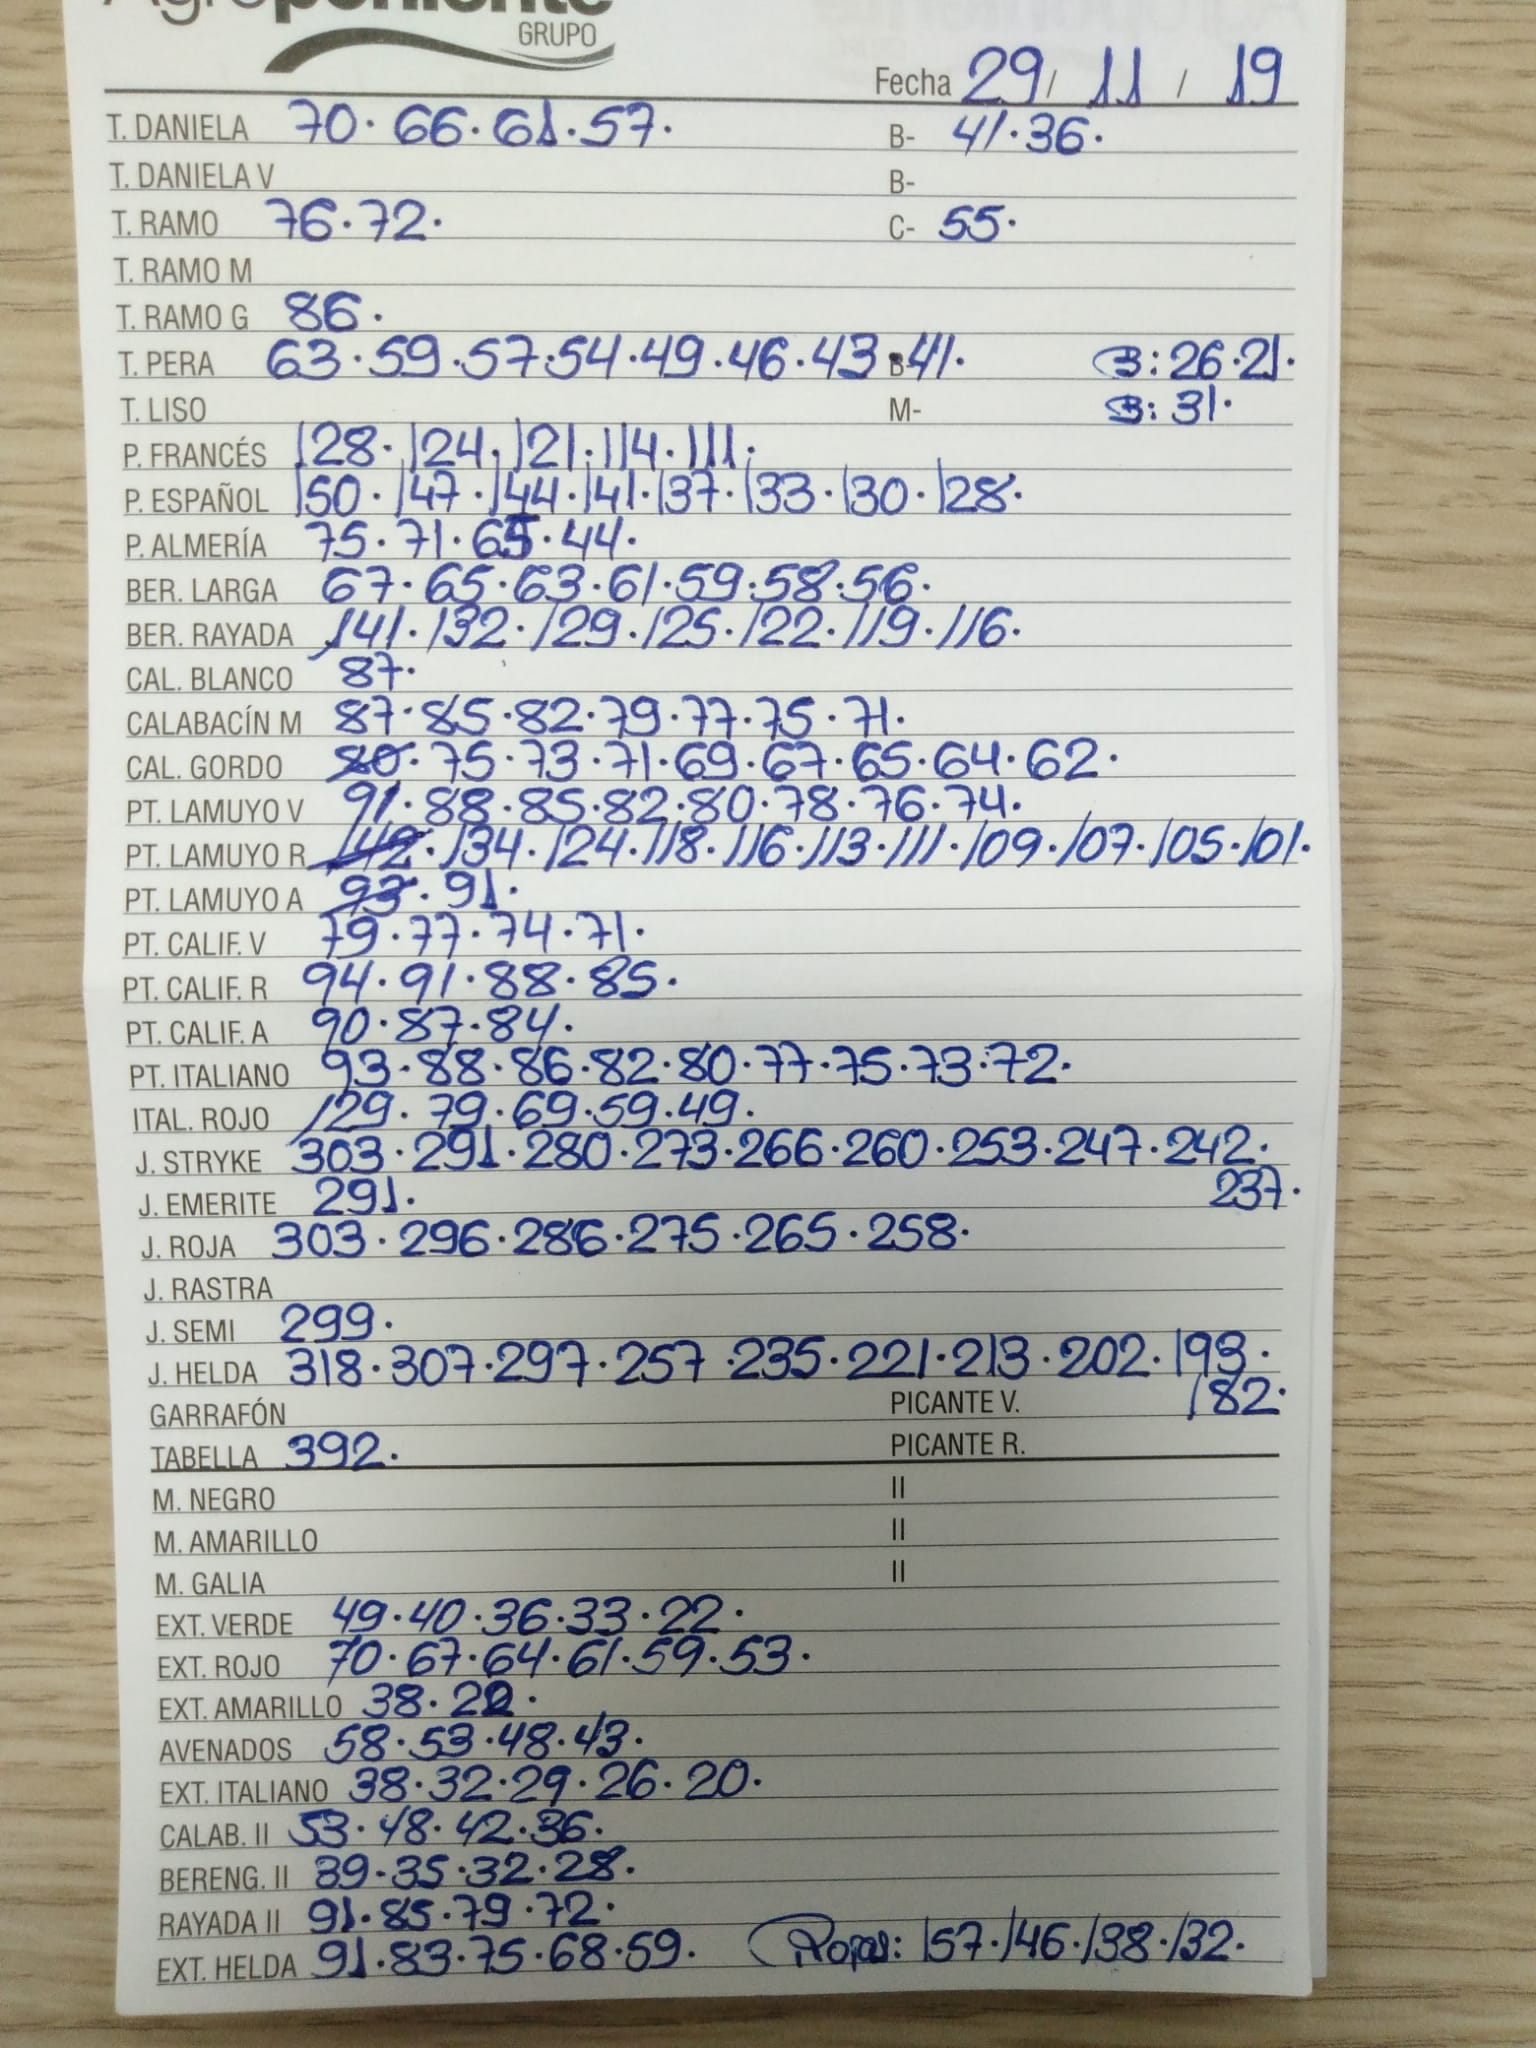 Agroponiente
GRUPO
Fecha 29 / 11 / 19
T. DANIELA 70. 66. 61. 57. B- 41. 36.
T. DANIELA V B-
T. RAMO 76. 72. C- 55.
T. RAMO M
T. RAMO G 86.
T. PERA 63. 59. 57. 54. 49. 46. 43. B- 41. B: 26. 21.
T. LISO M- B: 31.
P. FRANCÉS 128. 124. 121. 114. 111.
P. ESPAÑOL 150. 147. 144. 141. 137. 133. 130. 128.
P. ALMERÍA 75. 71. 65. 44.
BER. LARGA 67. 65. 63. 61. 59. 58. 56.
BER. RAYADA 141. 132. 129. 125. 122. 119. 116.
CAL. BLANCO 87.
CALABACÍN M 87. 85. 82. 79. 77. 75. 71.
CAL. GORDO 80. 75. 73. 71. 69. 67. 65. 64. 62.
PT. LAMUYO V 91. 88. 85. 82. 80. 78. 76. 74.
PT. LAMUYO R 142. 134. 124. 118. 116. 113. 111. 109. 107. 105. 101.
PT. LAMUYO A 93. 91.
PT. CALIF. V 79. 77. 74. 71.
PT. CALIF. R 94. 91. 88. 85.
PT. CALIF. A 90. 87. 84.
PT. ITALIANO 93. 88. 86. 82. 80. 77. 75. 73. 72.
ITAL. ROJO 129. 79. 69. 59. 49.
J. STRYKE 303. 291. 280. 273. 266. 260. 253. 247. 242.
J. EMERITE 291. 237.
J. ROJA 303. 296. 286. 275. 265. 258.
J. RASTRA
J. SEMI 299.
J. HELDA 318. 307. 297. 257. 235. 221. 213. 202. 193.
GARRAFÓN PICANTE V. 182.
TABELLA 392. PICANTE R.
M. NEGRO II
M. AMARILLO II
M. GALIA II
EXT. VERDE 49. 40. 36. 33. 22.
EXT. ROJO 70. 67. 64. 61. 59. 53.
EXT. AMARILLO 38.
AVENADOS 58. 53. 48. 43.
EXT. ITALIANO 38. 32. 29. 26. 20.
CALAB. II 53. 48. 42. 36.
BERENG. II 39. 35. 32. 28.
RAYADA II 91. 85. 79. 72.
EXT. HELDA 91. 83. 75. 68. 59. Rojas: 157. 146. 138. 132.